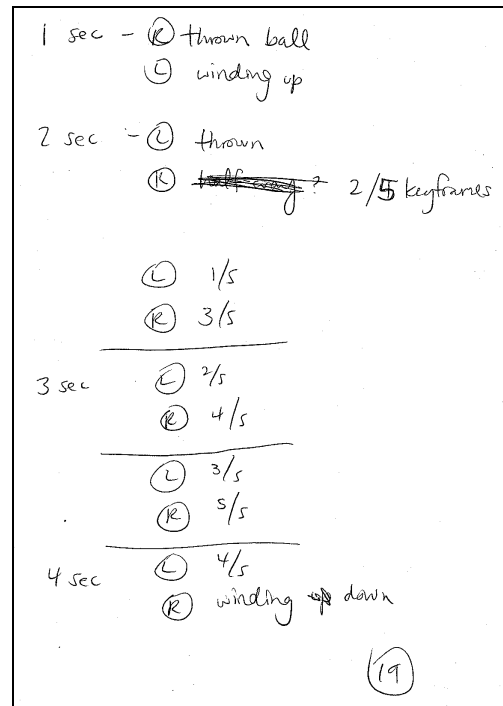 1 sec - R thrown ball
L winding up
2 sec - L thrown
R 2/5 keyframes
L 1/5
R 3/5
3 sec L 2/5
R 4/5
L 3/5
R 5/5
4 sec L 4/5
R winding up down
19